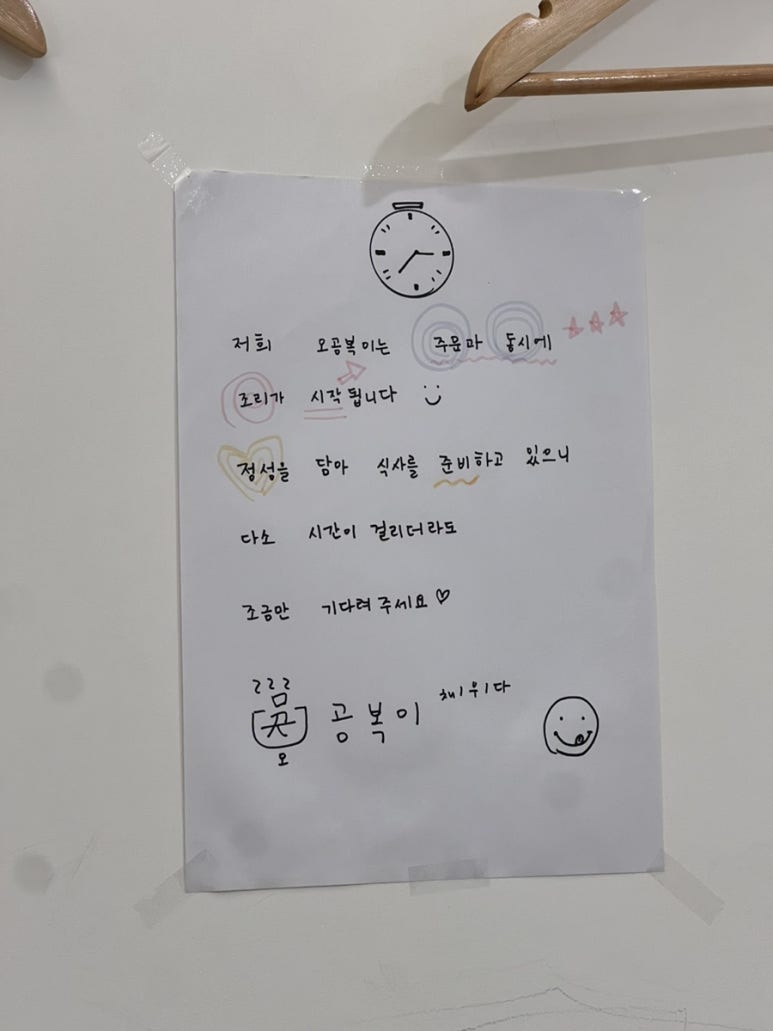 저희 오공복이는 주문과 동시에
조리가 시작됩니다
정성을 담아 식사를 준비하고 있으니
다소 시간이 걸리더라도
조금만 기다려 주세요 ♡
오 공복이 채우다